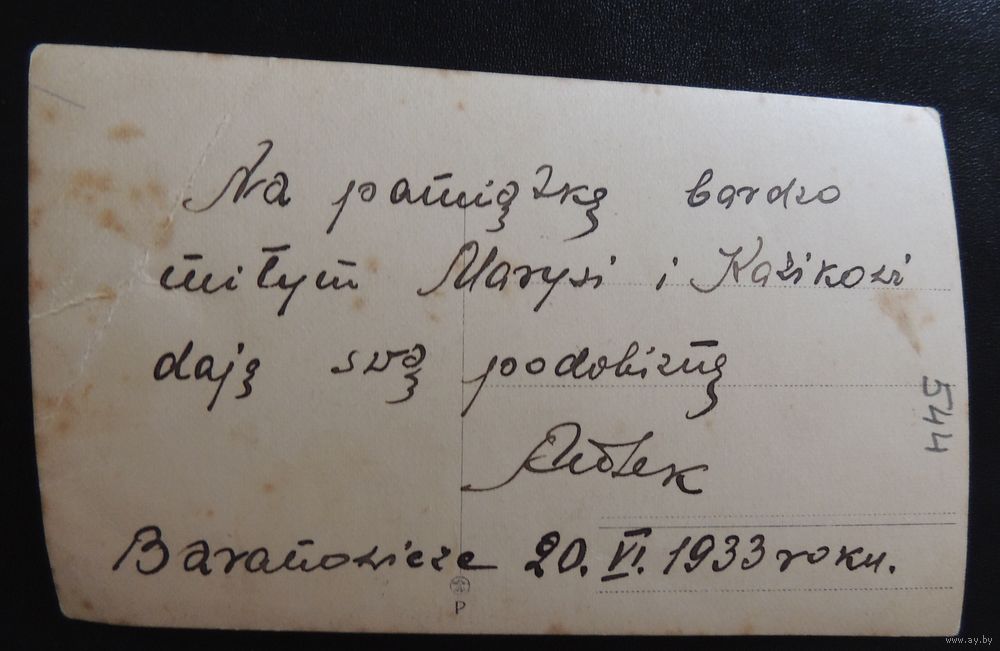 Na pamiątkę bardzo
miłym Marysi i Kazikowi
dają swą podobiznę
Baranowicze 20.VI.1933 roku.
P
544
www.ay.by